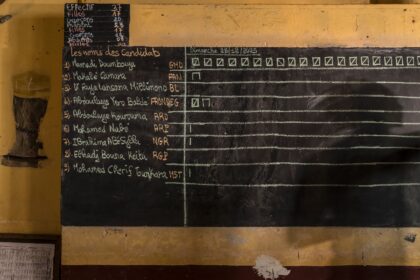 Effectif 27
Filles 17
Les noms des Candidats
Dimanche 28/12/2025
1) Mamadi Doumbouya GMD
2) Makalé Camara FAN
3) Dr Faya Lansana Millimono BL
4) Abdoulaye Yero Baldé FRONDEG
5) Abdoulaye Kourouma RRD
6) Mohamed Nabé ARP
7) Ibrahima Abé Sylla NGR
8) Elhadj Bouna Keita RGP
9) Mohamed Chérif Tounkara MST